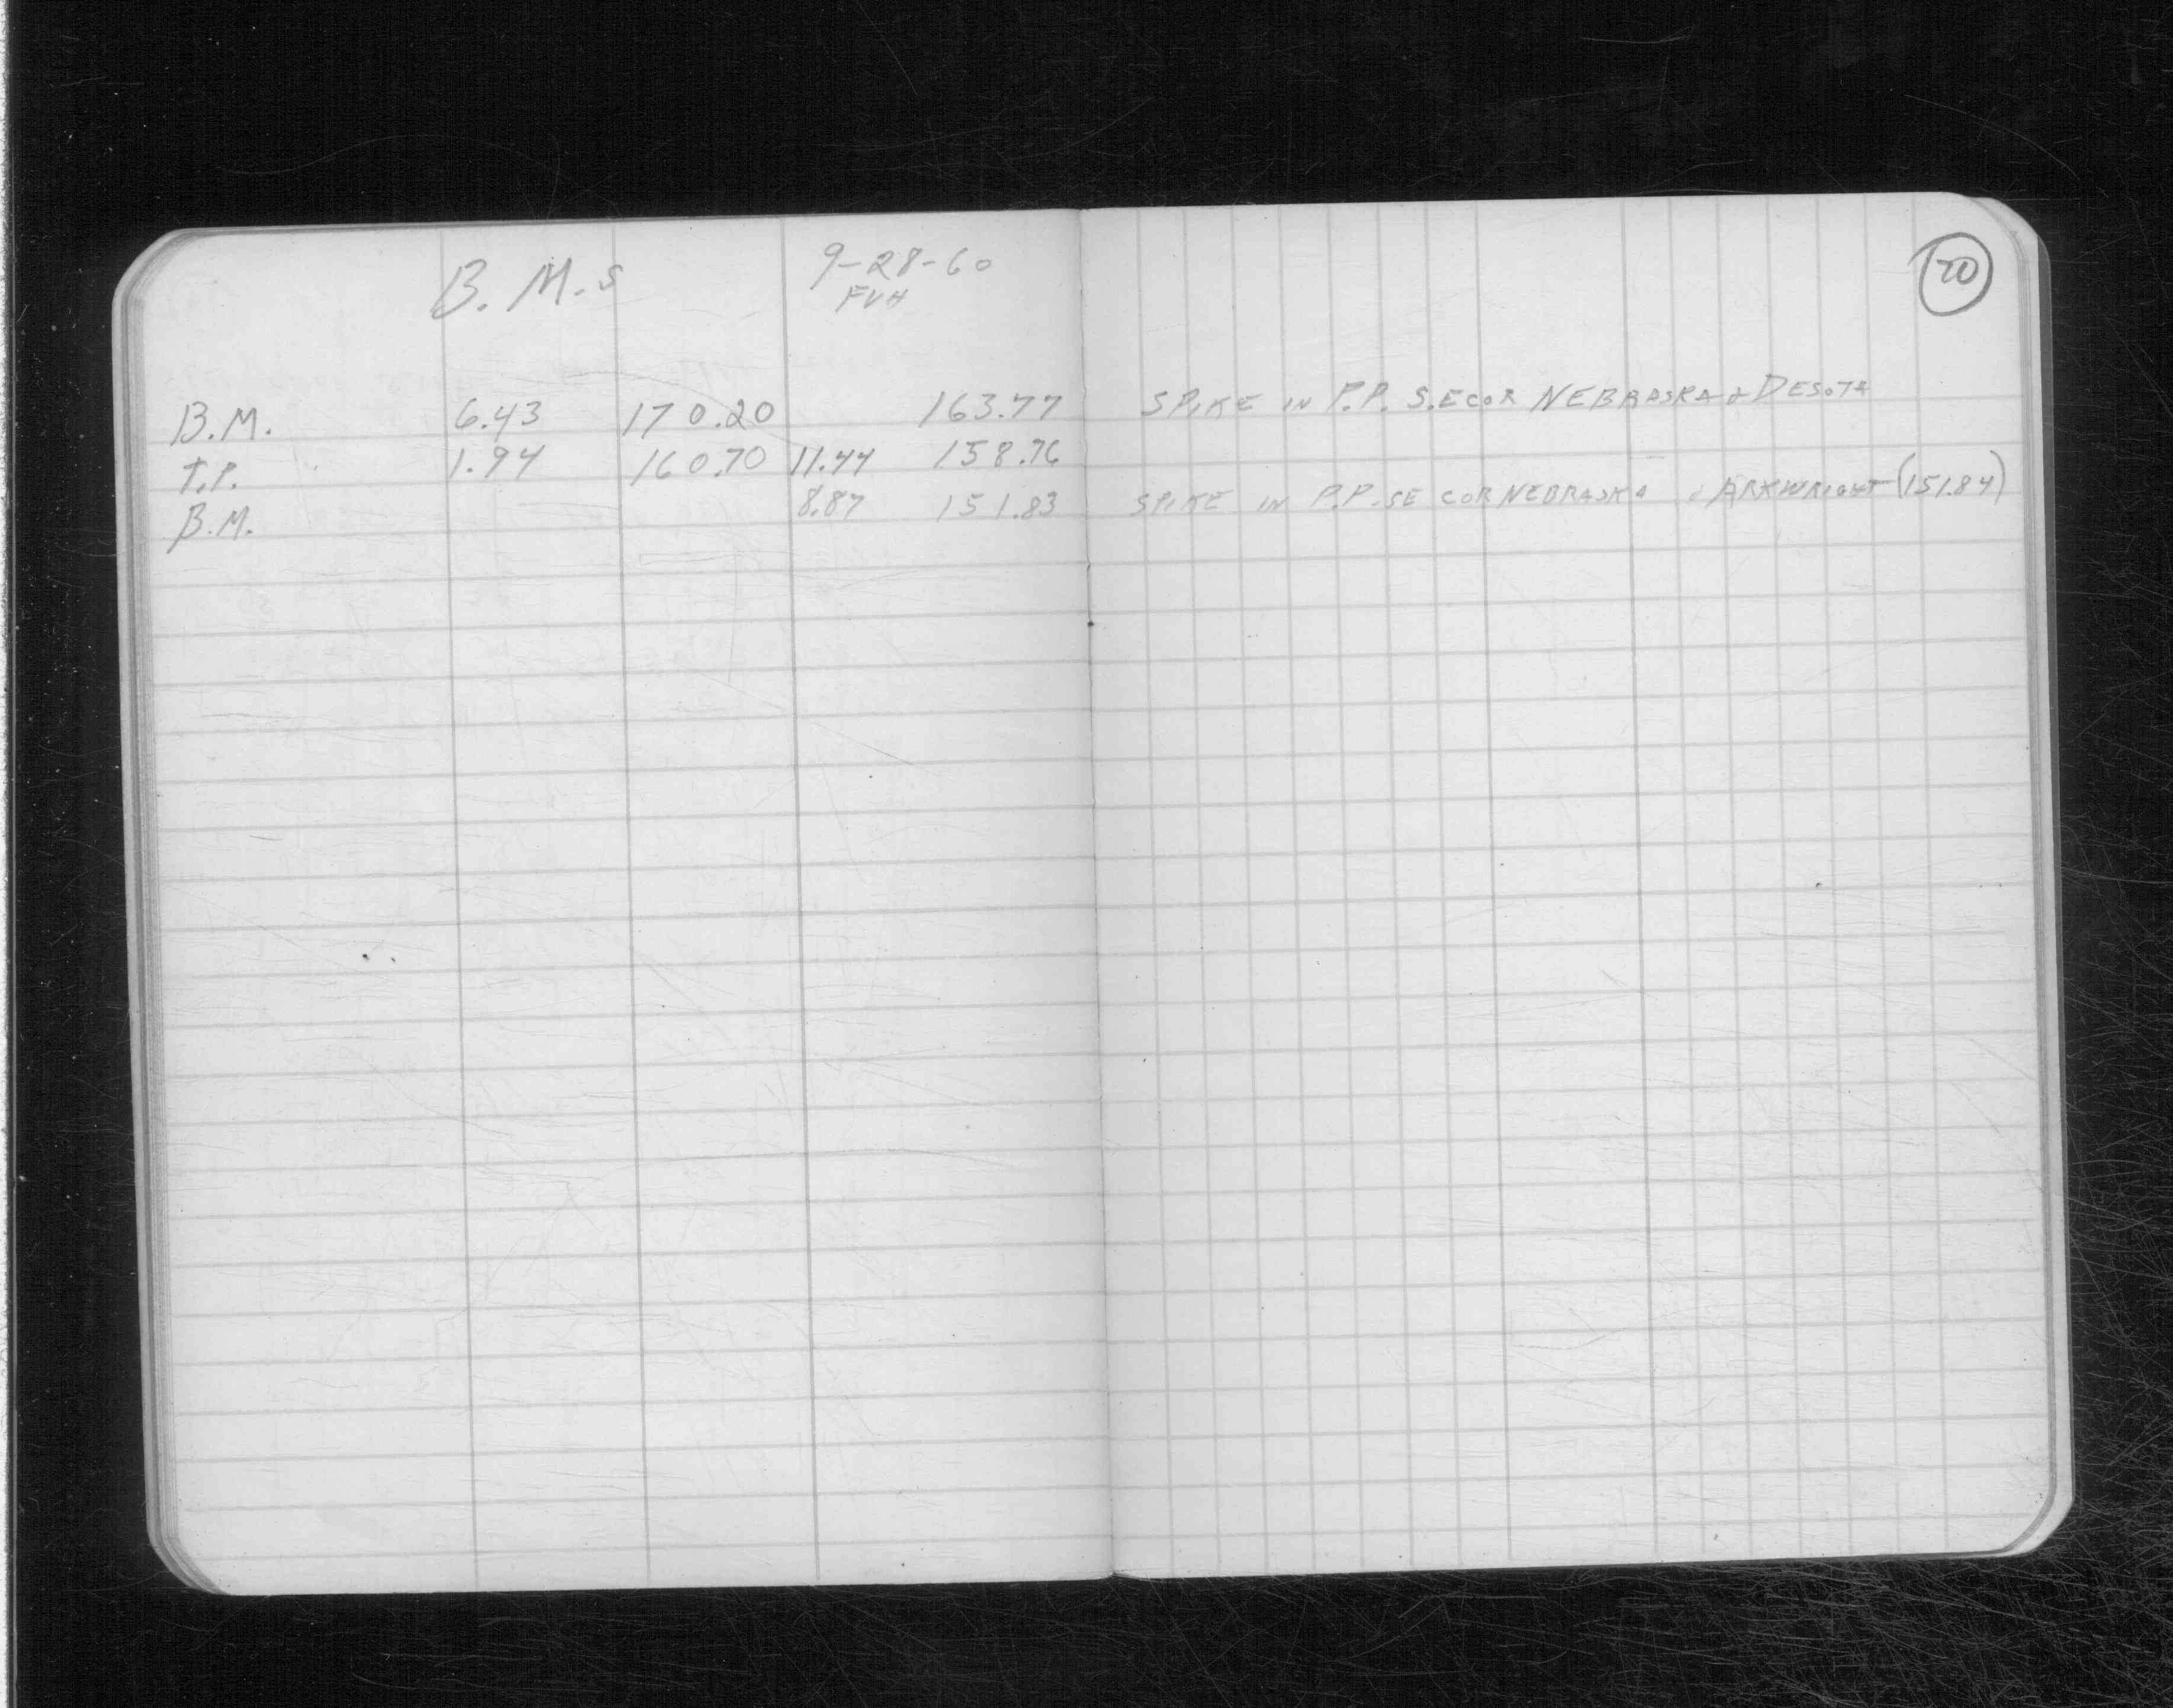 B. M.s 9-28-60
FVH
20
B.M. 6.43 170.20 163.77 SPIKE IN P.P. S.E COR NEBRASKA & DESOTA
T.P. 1.94 160.70 11.44 158.76
B.M. 8.87 151.83 SPIKE IN P.P. SE COR NEBRASKA & ARKWRIGHT (151.84)